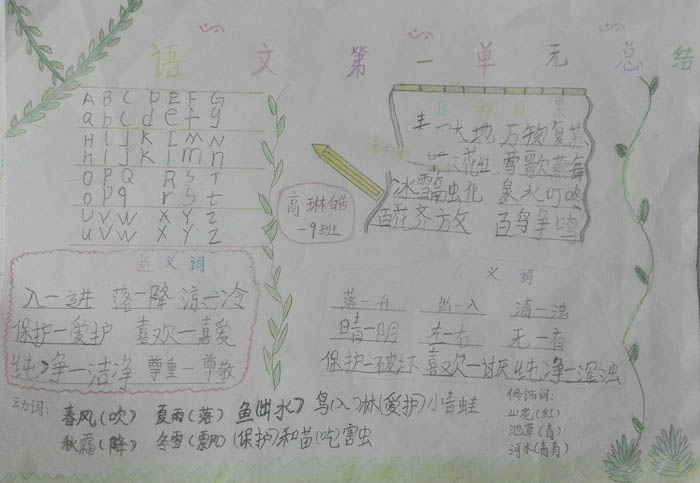 语文第一单元总结
A B C D E F G
a b c d e f g
H I J K L M N
h i j k l m n
O P Q R S T
o p q r s t
U V W X Y Z
u v w x y z
日积月累
大地 万物复苏
花红 莺歌燕舞
冰雪融化 泉水叮咚
百花齐放 百鸟争鸣
高琳皓
一9班
近义词
入一进 落一降 凉一冷
保护一爱护 喜欢一喜爱
纯净一洁净 尊重一尊敬
义词
落一升 出一入 清一浊
晴一阴 左一右 无一有
保护一破坏 喜欢一讨厌 纯净一浑浊
动词:
春风(吹) 夏雨(落) 鱼(出水) 鸟(入)林(爱护)小青蛙
秋霜(降) 冬雪(飘) (保护)和苗(吃)害虫
修饰词:
山花(红)
池草(青)
河水(青青)